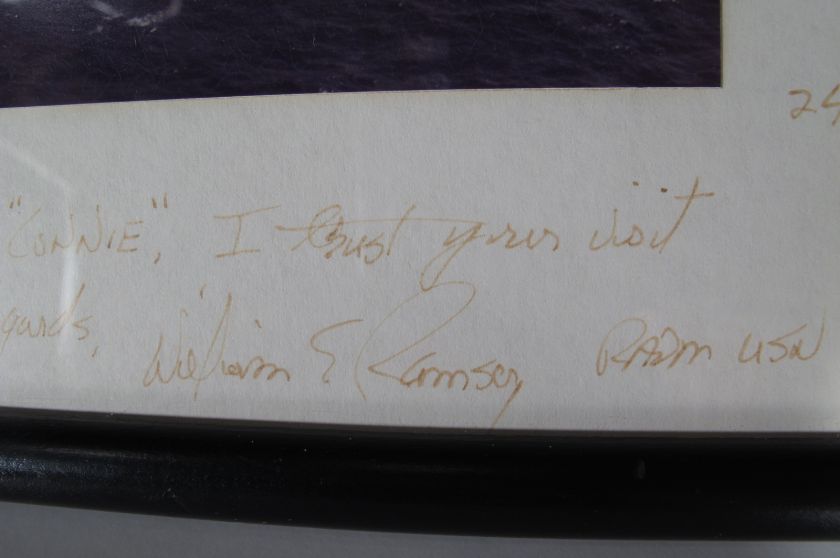 24
"CONNIE", I trust your visit
gards, William E Ramsey RADM USN